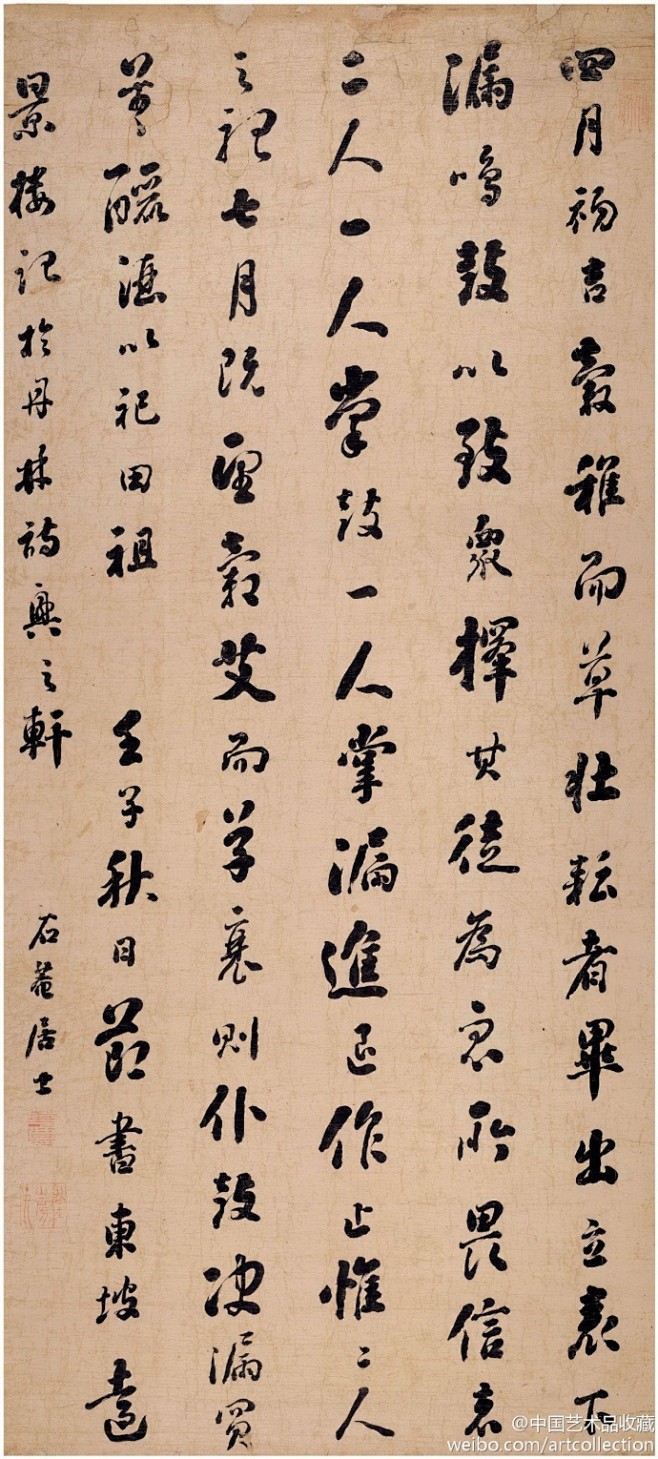 四月初吉穀稚而草壯耘者畢出立表下
漏鳴鼓以致眾擇其徒為眾所畏信者
二人一人掌鼓一人掌漏進退作止惟二人
之七月既望穀艾而草衰則仆鼓決漏買
羊釃酒以祀田祖 壬子秋日節書東坡遠
景樓記於丹林詩興之軒 石菴居士
@中国艺术品收藏
weibo.com/artcollection